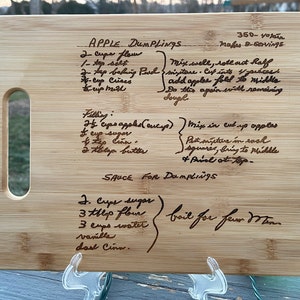 APPLE DUMPLINGS
350- oven
Makes 8 servings
2 cups flour
1 tsp salt
2 tsp baking Powd
3/4 cup Crisco
1/2 cup Milk
Mix well, roll out half
mixture - Cut into squares
add apples to middle
Do this again with remaining
dough
Filling:
2 1/2 cups apples (cut up)
1/2 cup sugar
1/2 tsp Cinn.
2 tblsp butter
Mix in cut up apples
Put mixture in each
square, bring to Middle
& Pinch at top.
SAUCE FOR DUMPLINGS
2 cups sugar
3 tblsp flour
3 cups water
vanilla
dash Cinn.
boil for few Min.